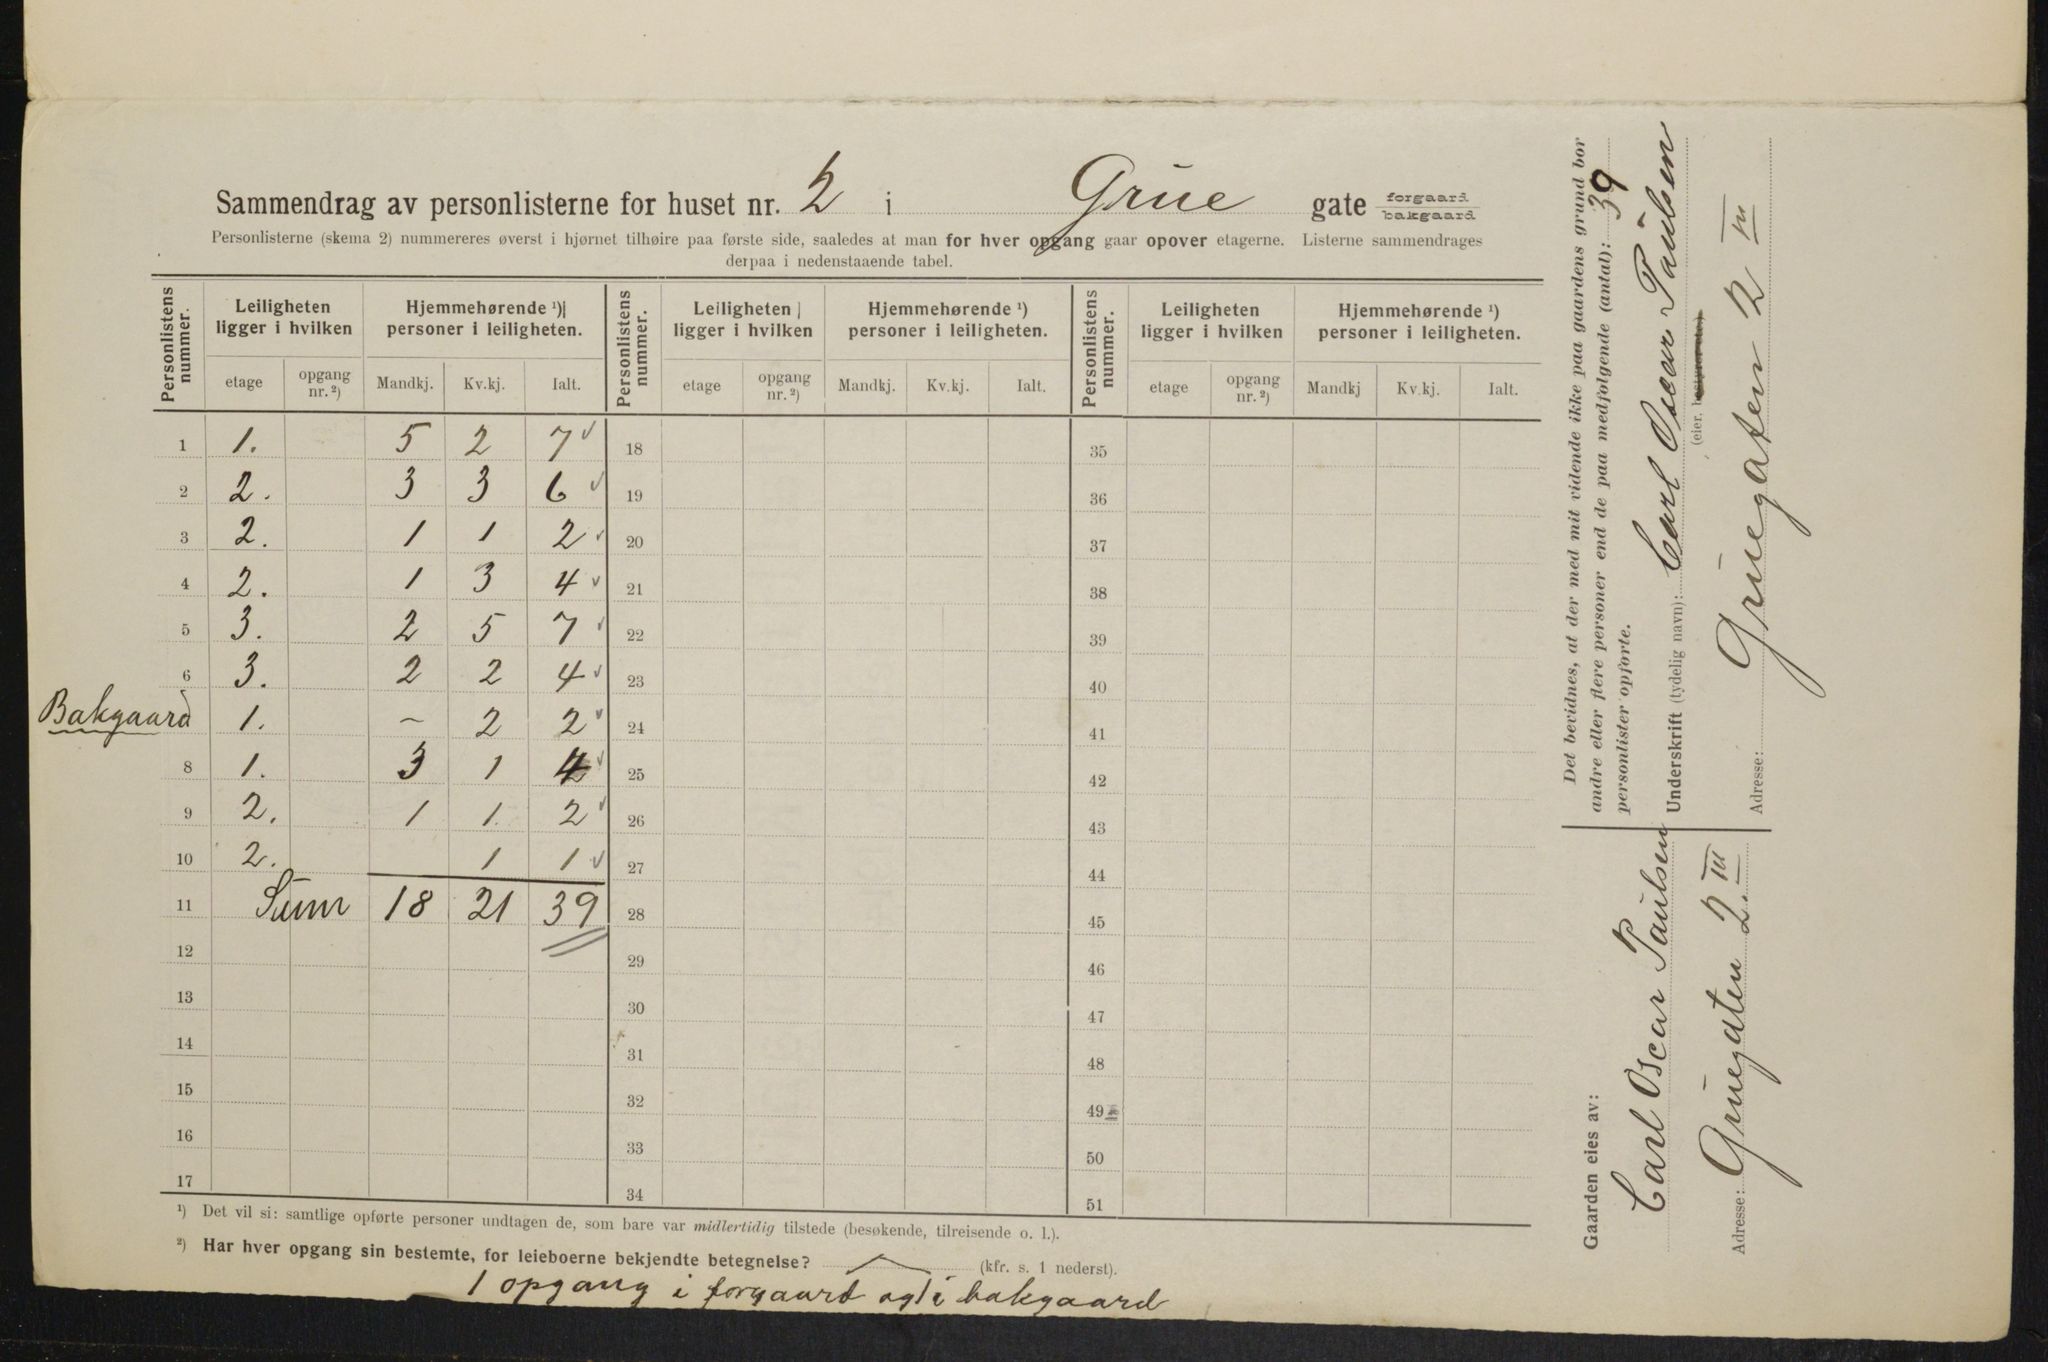 Sammendrag av personlisterne for huset nr. 2 i Grue gate forgaard bakgaard
Personlisterne (skema 2) nummereres øverst i hjørnet tilhøire paa første side, saaledes at man for hver opgang gaar opover etagerne. Listerne sammendrages
derpaa i nedenstaaende tabel.
Personlistens nummer. Leiligheten ligger i hvilken Hjemmehørende ¹) personer i leiligheten. Personlistens nummer. Leiligheten ligger i hvilken Hjemmehørende ¹) personer i leiligheten. Personlistens nummer. Leiligheten ligger i hvilken Hjemmehørende ¹) personer i leiligheten.
etage opgang nr. ²) Mandkj. Kv.kj. Ialt. etage opgang nr. ²) Mandkj. Kv.kj. Ialt. etage opgang nr. ²) Mandkj Kv.kj. Ialt.
1 1. 5 2 7 ✓ 18 35
2 2. 3 3 6 ✓ 19 36
3 2. 1 1 2 ✓ 20 37
4 2. 1 3 4 ✓ 21 38
5 3. 2 5 7 ✓ 22 39
6 3. 2 2 4 ✓ 23 40
Bakgaard 1. – 2 2 ✓ 24 41
8 1. 3 1 4 ✓ 25 42
9 2. 1 1. 2 ✓ 26 43
10 2. 1 1 ✓ 27 44
11 Sum 18 21 39 28 45
12 29 46
13 30 47
14 31 48
15 32 49
16 33 50
17 34 51
¹) Det vil si: samtlige opførte personer undtagen de, som bare var midlertidig tilstede (besøkende, tilreisende o. l.).
²) Har hver opgang sin bestemte, for leieboerne bekjendte betegnelse? (kfr. s. 1 nederst).
1 opgang i forgaard og 1 i bakgaard
Det bevidnes, at der med mit vidende ikke paa gaardens grund bor
andre eller flere personer end de paa medfølgende (antal): 39
personlister opførte.
Underskrift (tydelig navn): Carl Oscar Paulsen
(eier,
Adresse: Gruegaten 2 III
Gaarden eies av:
Carl Oscar Paulsen
Adresse: Gruegaten 2. III